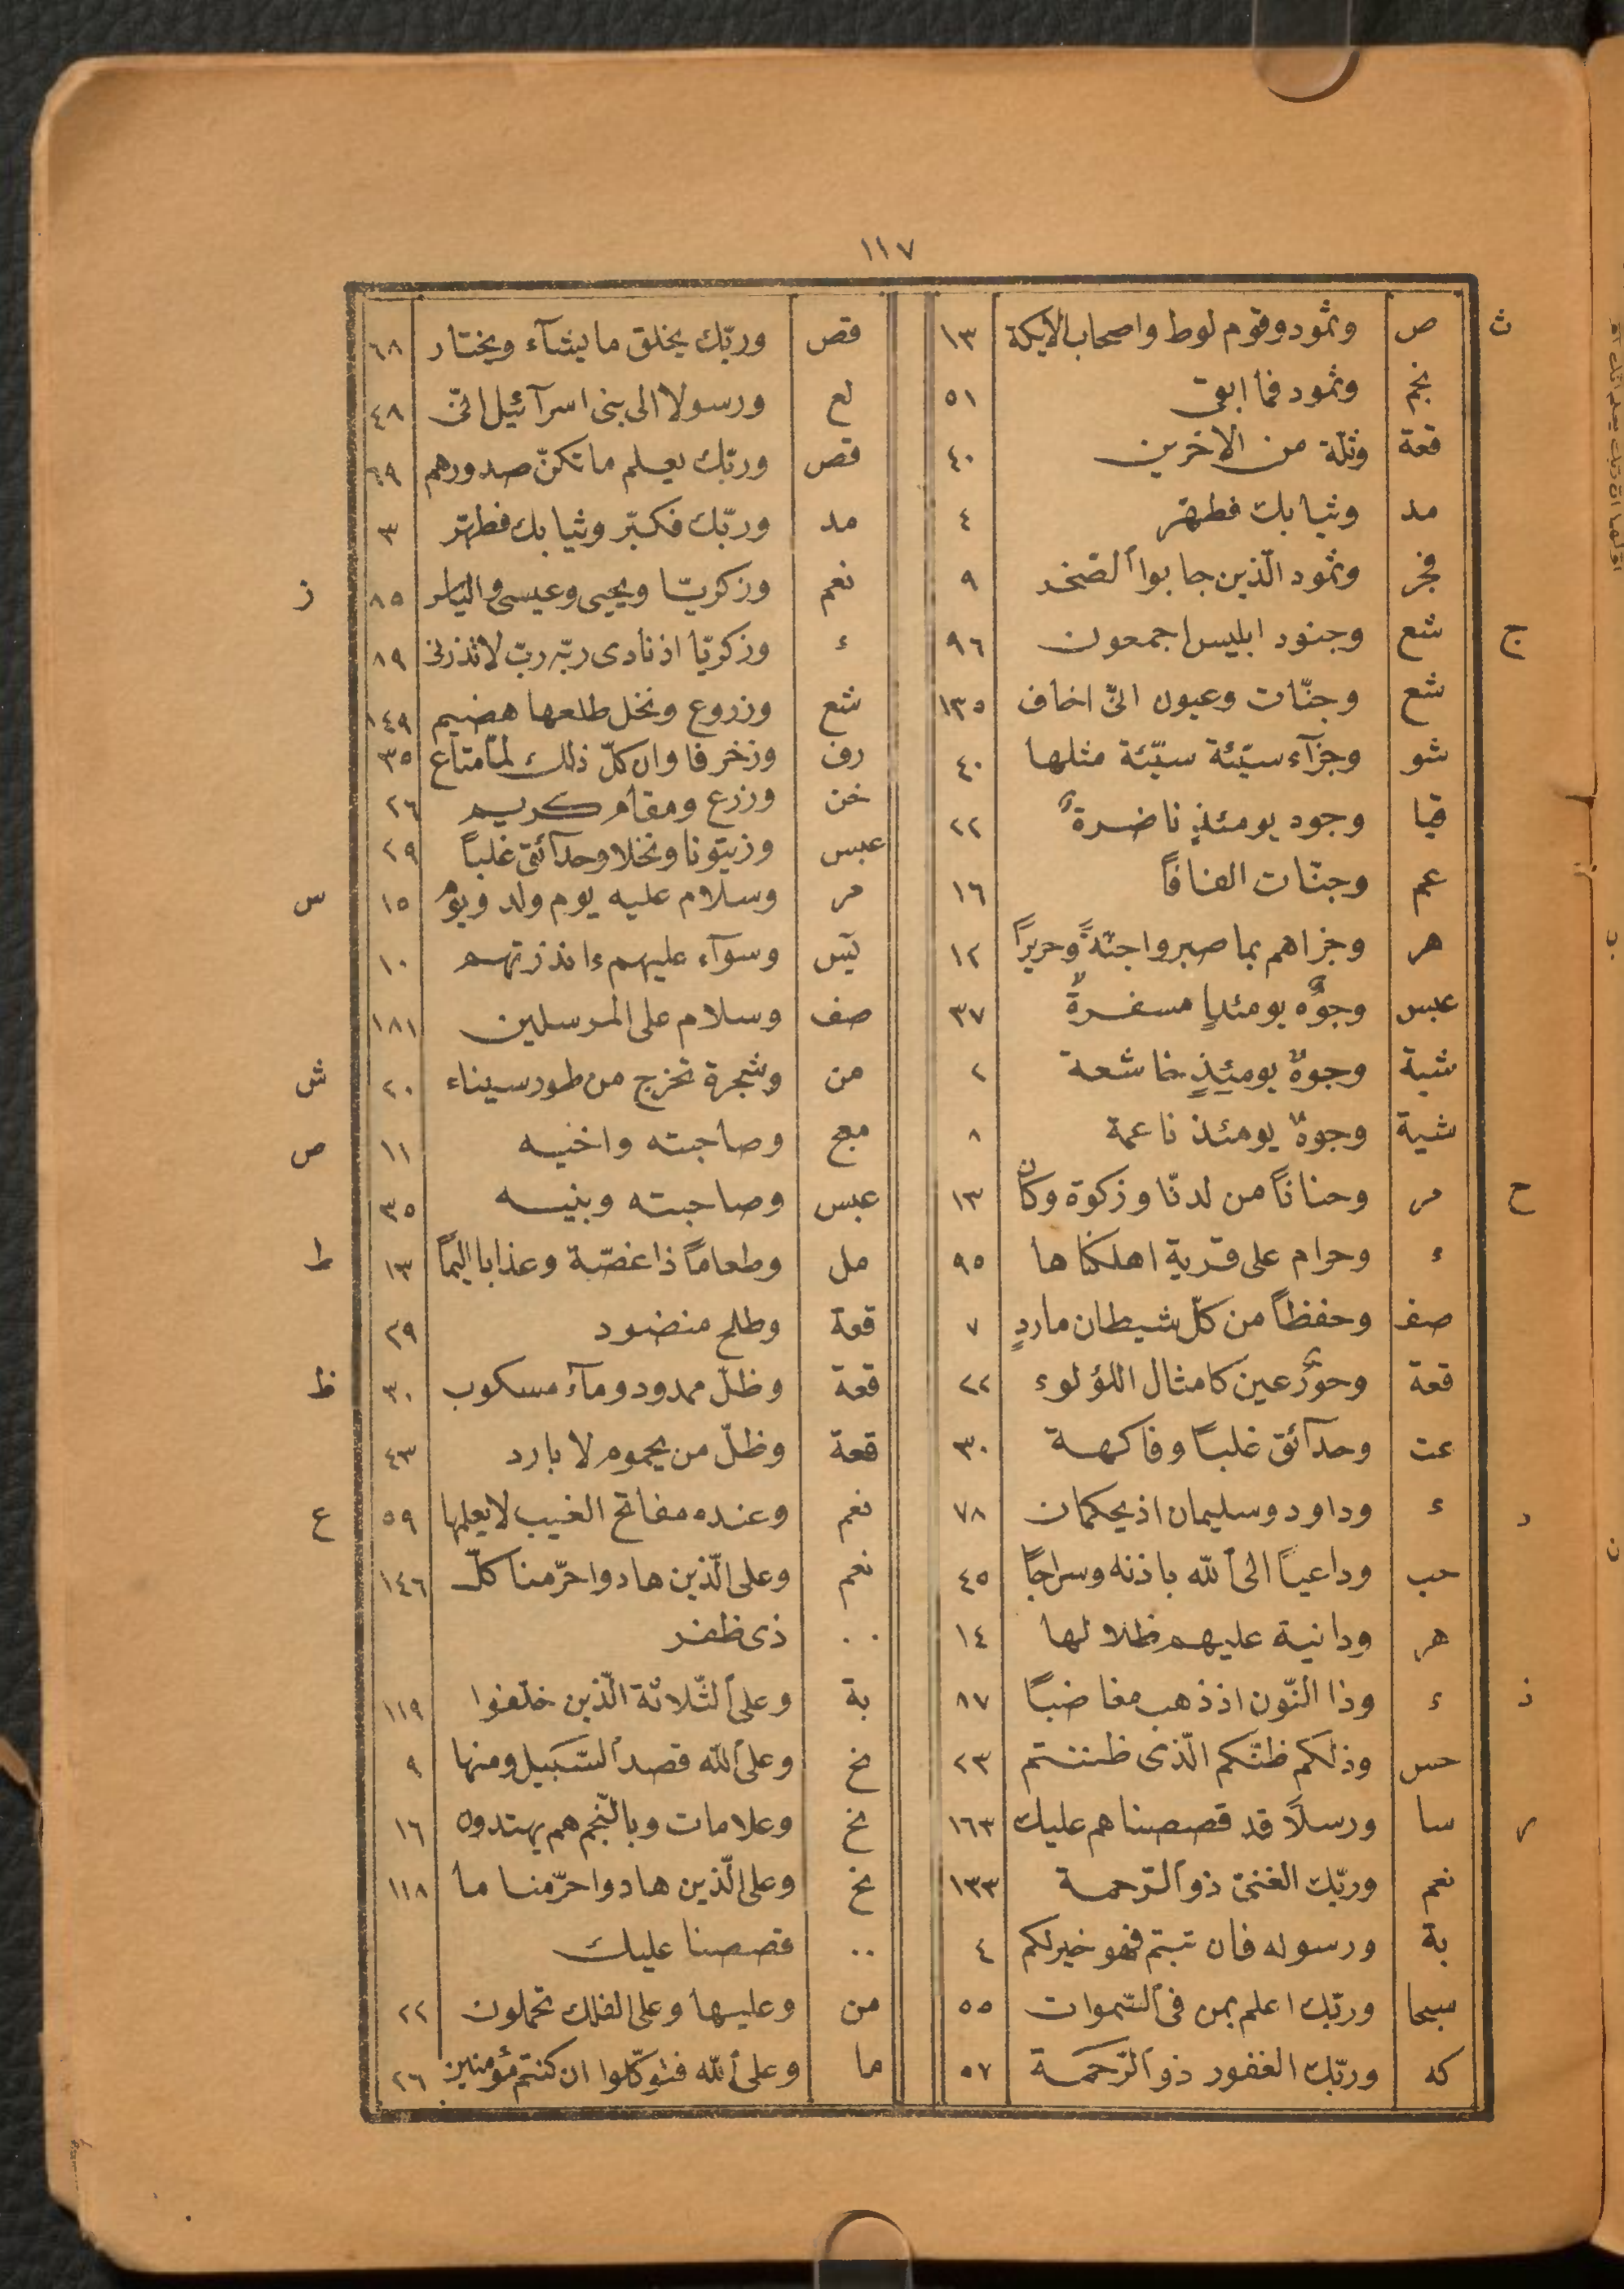 ١١٧
ث ص وثمود وقوم لوط واصحاب الايكة ١٣
نجم وثمود فما ابقى ٥١
قعة وثلّة من الاخرين ٤٠
مد وثيابك فطهّر ٤
فجر وثمود الّذين جابوا الصّخر ٩
ج شع وجنود ابليس اجمعون ٩٦
شع وجنّات وعيون انّى اخاف ١٣٥
شو وجزآء سيّئة سيّئة مثلها ٤٠
قيا وجوه يومئذٍ ناضرةٌ ٢٢
عم وجنّات الفافاً ١٦
هر وجزاهم بما صبروا جنّةً وحريراً ١٢
عبس وجوهٌ يومئذٍ مسفرةٌ ٣٧
شية وجوهٌ يومئذٍ خاشعة ٢
شية وجوهٌ يومئذ ناعمة ٨
ح مر وحناناً من لدنّا وزكوة وكان ١٣
ء وحرام على قرية اهلكناها ٩٥
صف وحفظاً من كلّ شيطان ماردٍ ٧
قعة وحورٌ عين كامثال اللؤلوء ٢٢
عت وحدآئق غلباً وفاكهة ٣٠
د ء وداود وسليمان اذ يحكمان ٧٨
حب وداعياً الى الله باذنه وسراجاً ٤٥
هر ودانية عليهم ظلالها ١٤
ذ ء وذا النّون اذ ذهب مغاضباً ٨٧
حس وذلكم ظنّكم الّذى ظننتم ٢٣
ر سا ورسلاً قد قصصناهم عليك ١٦٣
نعم وربّك الغنىّ ذو الرّحمة ١٣٣
بة ورسوله فان تبتم فهو خير لكم ٤
سبحا وربّك اعلم بمن فى السّموات ٥٥
كه وربّك الغفور ذو الرّحمة ٥٧
قص وربّك يخلق ما يشآء ويختار ٦٨
لع ورسولا الى بنى اسرآئيل انّى ٤٨
قص وربّك يعلم ما تكنّ صدورهم ٦٩
مد وربّك فكبّر وثيابك فطهّر ٣
نعم وزكريّا ويحيى وعيسى والياس ٨٥ ز
ء وزكريّا اذ نادى ربّه ربّ لا تذرنى ٨٩
شع وزروع ونخل طلعها هضيم ١٤٩
رف وزخرفا وان كلّ ذلك لمّا متاع ٣٥
خن وزرع ومقام كريم ٢٦
عبس وزيتونا ونخلا وحدآئق غلباً ٢٩
مر وسلام عليه يوم ولد ويوم ١٥ س
يس وسوآء عليهم ءانذرتهم ١٠
صف وسلام على المرسلين ١٨١
من وشجرة تخرج من طور سيناء ٢٠ ش
مع وصاحبته واخيه ١١ ص
عبس وصاحبته وبنيه ٣٥
مل وطعاماً ذا غصّة وعذابا اليماً ١٣ ط
قعة وطلح منضود ٢٩
قعة وظلّ ممدود ومآء مسكوب ٣٠ ظ
قعة وظلّ من يحموم لا بارد ٤٣
نعم وعنده مفاتح الغيب لا يعلمها ٥٩ ع
نعم وعلى الّذين هادوا حرّمنا كلّ ١٤٦
.. ذى ظفر
بة وعلى الثّلاثة الّذين خلّفوا ١١٩
نح وعلى الله قصد السّبيل ومنها ٩
نح وعلامات وبالنّجم هم يهتدون ١٦
نح وعلى الّذين هادوا حرّمنا ما ١١٨
.. قصصنا عليك
من وعليها وعلى الفلك تحملون ٢٢
ما وعلى الله فتوكّلوا ان كنتم مؤمنين ٢٦